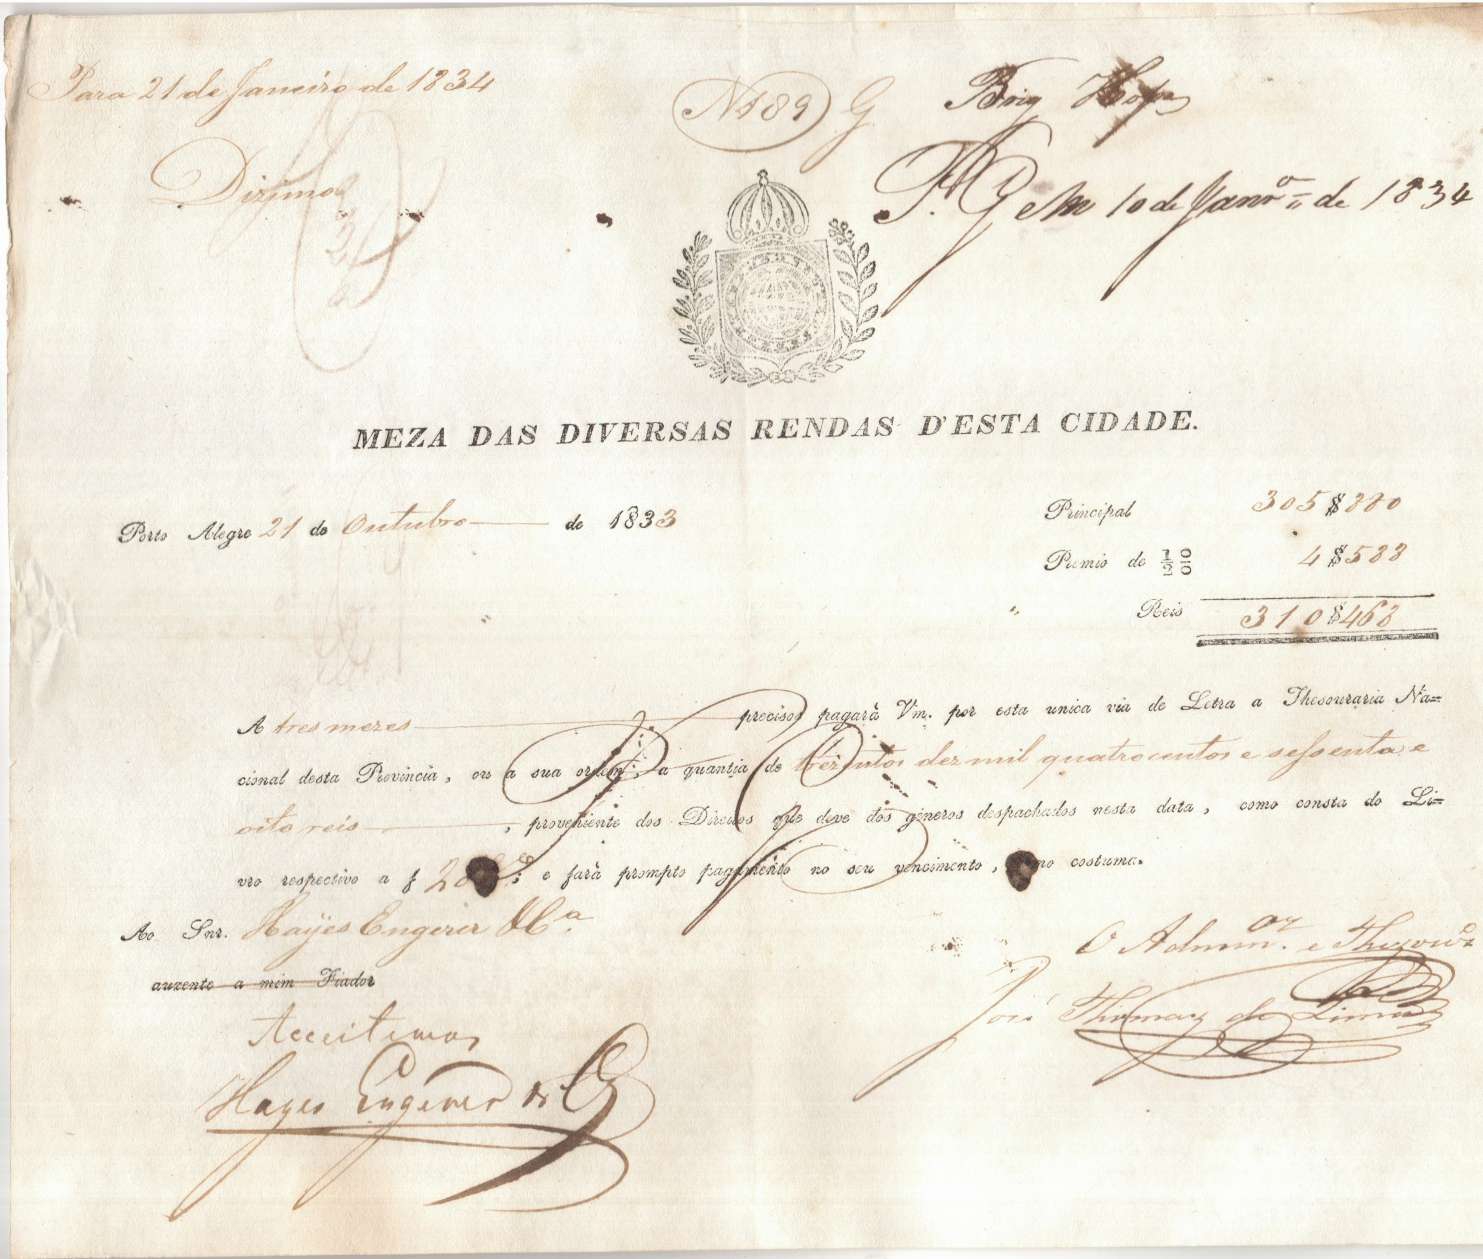 Para 21 de Janeiro de 1834
N 189 G
Brig Hope
Dizimos
P. G em 10 de Janrº de 1834
MEZA DAS DIVERSAS RENDAS D'ESTA CIDADE.
Porto Alegre 21 de Outubro de 1833
Principal 305$880
Premio de ½ % 4$588
Reis 310$468
A tres mezes precisos pagarà Vm. por esta unica via de Letra a Thesouraria Na=
cional desta Provincia, ou a sua ordem, a quantia de trezentos dez mil quatrocentos e sessenta e
oito reis, proveniente dos Direitos que deve dos géneros despachados nesta data, como consta do Li=
vro respectivo a f ; e farà prompto pagamento no seu vencimento, como costuma.
Ao Snr. Hayes Engerer & Cª.
auzente a mim Fiador
O Admimor. e Thezourº
José Thomaz de Lima
Acceitamos
Hayes Engerer & Cª